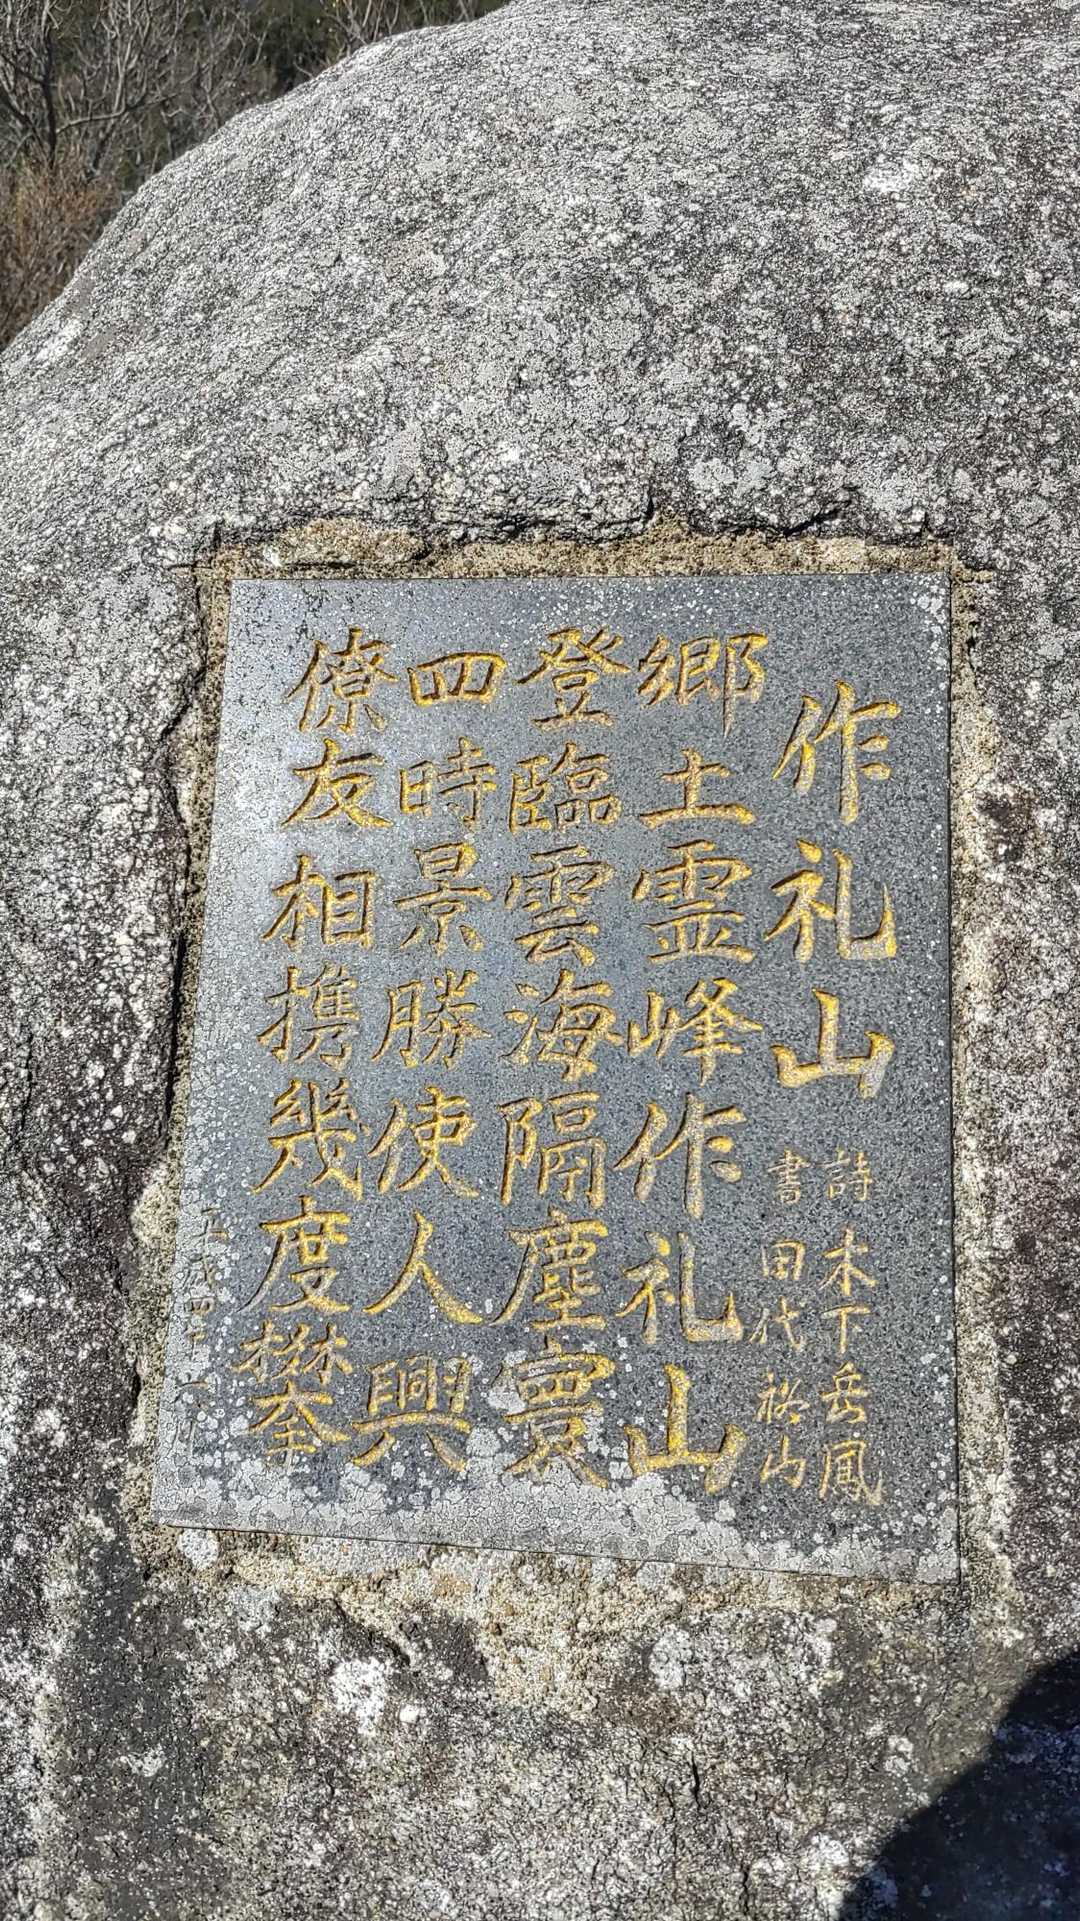 作礼山
詩 木下岳鳳
書 田代秘山
郷土霊峰作礼山
登臨雲海隔塵寰
四時景勝使人興
僚友相携幾度攀
平成四